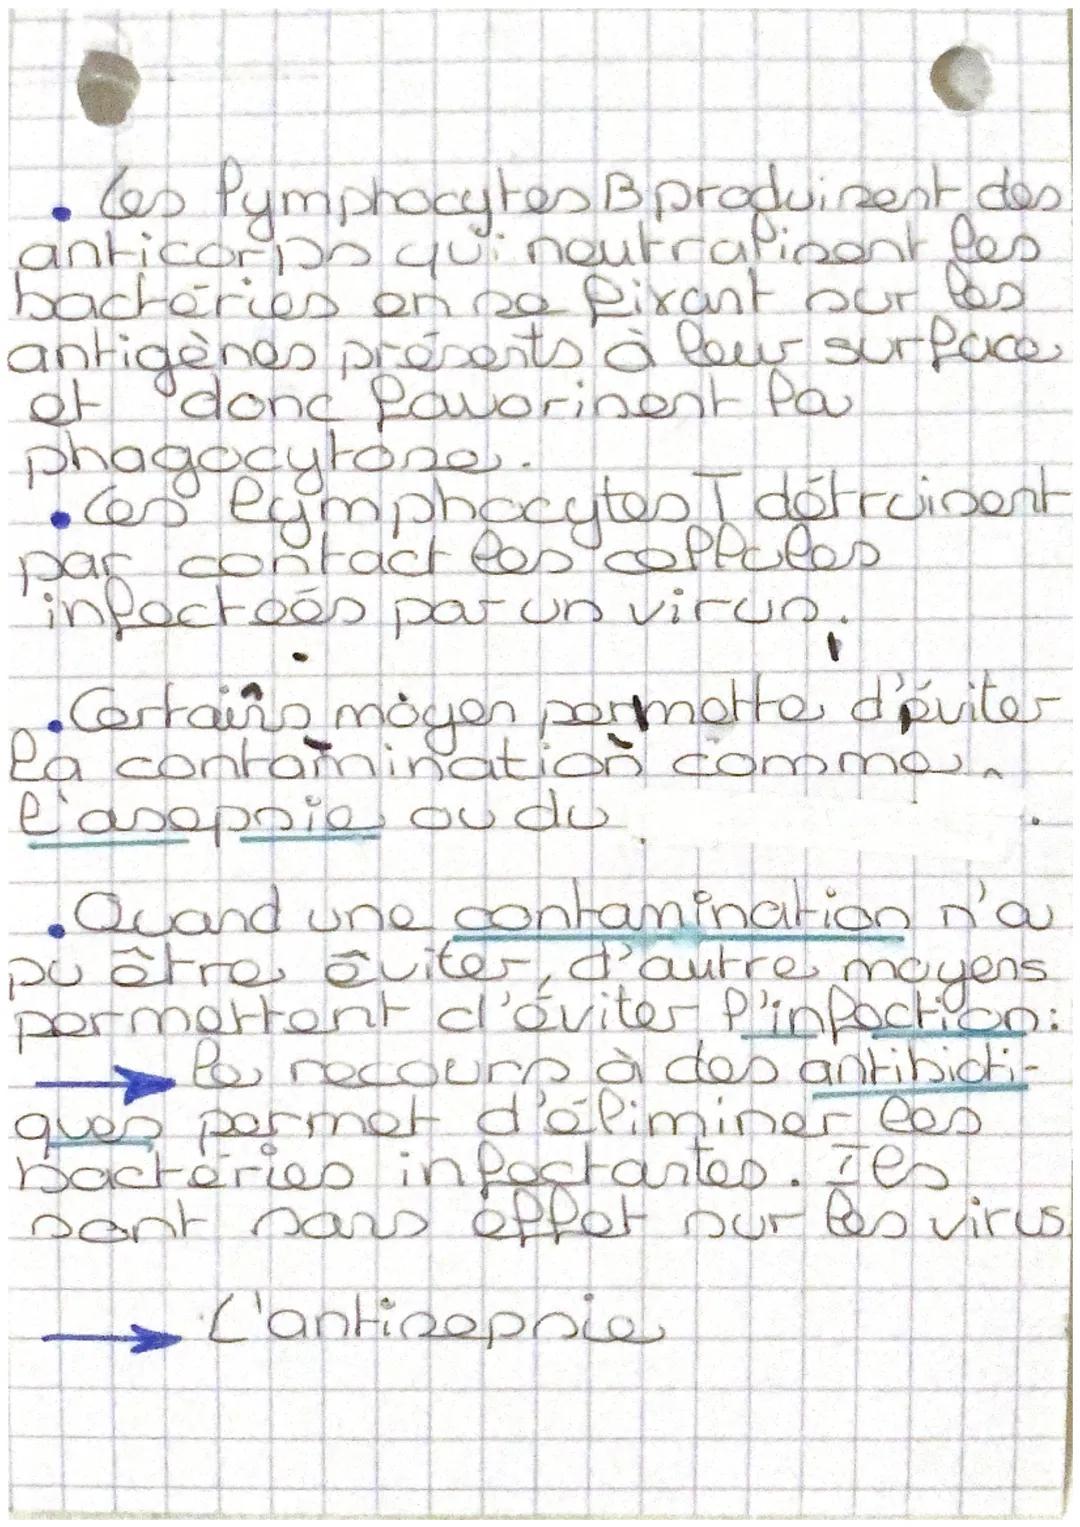 • Les lymphocytes B produisent des
anticorps qui neutralisent les
bactéries en se fixant sur les
antigènes présents à leur surface
et donc favorisent la
phagocytose.
• Les lymphocytes T détruisent
par contact les cellules
infectées par un virus.
• Certains moyen permette d'éviter
la contamination comme
l'asepsie ou du
• Quand une contamination n'a
pu être éviter, d'autre moyens
permettent d'éviter l'infection:
→ le recours à des antibioti-
ques permet d'éliminer les
bactéries infectantes. Ils
sont sans effet sur les virus
→ L'antisepsie